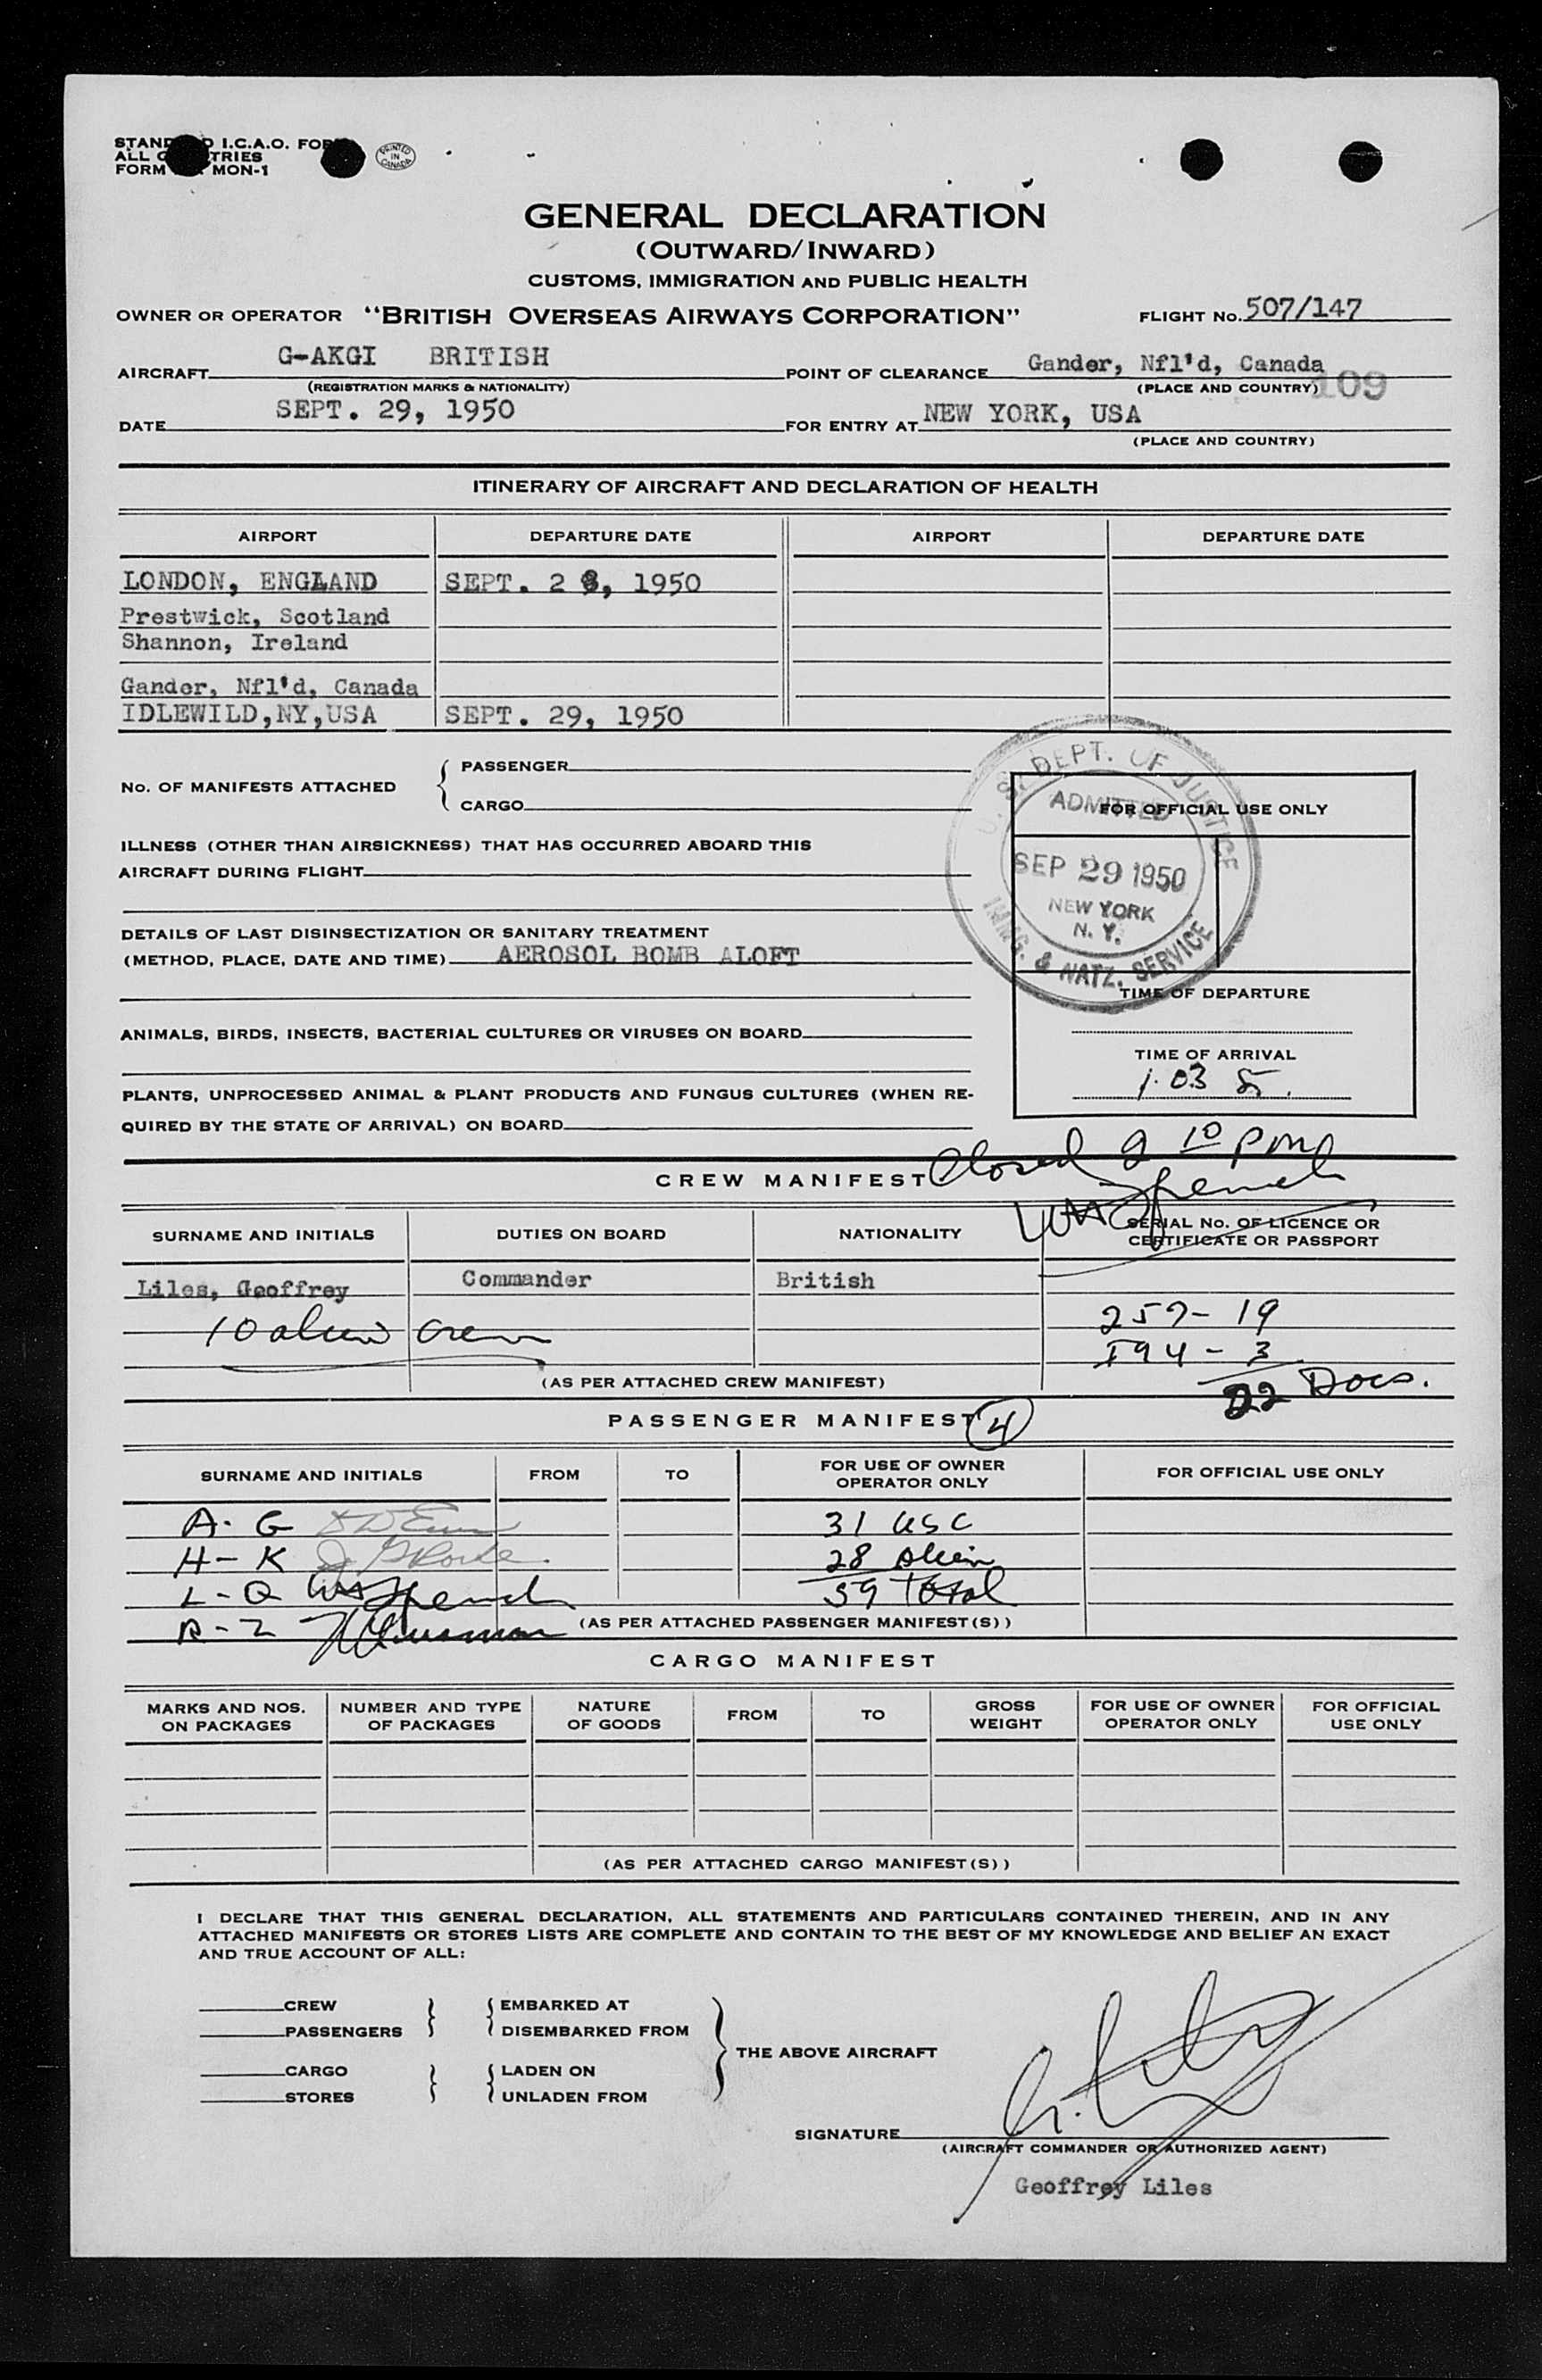 STAND D I.C.A.O. FOR
ALL C TRIES
FORM MON-1
PRINTED IN CANADA
GENERAL DECLARATION
(OUTWARD/INWARD)
CUSTOMS, IMMIGRATION AND PUBLIC HEALTH
OWNER OR OPERATOR "BRITISH OVERSEAS AIRWAYS CORPORATION" FLIGHT No. 507/147
AIRCRAFT G-AKGI BRITISH POINT OF CLEARANCE Gander, Nfl'd, Canada
(REGISTRATION MARKS & NATIONALITY) (PLACE AND COUNTRY) 109
DATE SEPT. 29, 1950 FOR ENTRY AT NEW YORK, USA
(PLACE AND COUNTRY)
ITINERARY OF AIRCRAFT AND DECLARATION OF HEALTH
AIRPORT DEPARTURE DATE AIRPORT DEPARTURE DATE
LONDON, ENGLAND SEPT. 28, 1950
Prestwick, Scotland
Shannon, Ireland
Gander, Nfl'd, Canada
IDLEWILD,NY,USA SEPT. 29, 1950
No. OF MANIFESTS ATTACHED { PASSENGER
CARGO
U. S. DEPT. OF JUSTICE
ADMITTED
SEP 29 1950
NEW YORK
N. Y.
IMMG. & NATZ. SERVICE
FOR OFFICIAL USE ONLY
ILLNESS (OTHER THAN AIRSICKNESS) THAT HAS OCCURRED ABOARD THIS
AIRCRAFT DURING FLIGHT
DETAILS OF LAST DISINSECTIZATION OR SANITARY TREATMENT
(METHOD, PLACE, DATE AND TIME) AEROSOL BOMB ALOFT
TIME OF DEPARTURE
ANIMALS, BIRDS, INSECTS, BACTERIAL CULTURES OR VIRUSES ON BOARD
TIME OF ARRIVAL
1.03
PLANTS, UNPROCESSED ANIMAL & PLANT PRODUCTS AND FUNGUS CULTURES (WHEN RE-
QUIRED BY THE STATE OF ARRIVAL) ON BOARD
Closed 2 10 PM
CREW MANIFEST
SURNAME AND INITIALS DUTIES ON BOARD NATIONALITY SERIAL No. OF LICENCE OR
CERTIFICATE OR PASSPORT
Liles, Geoffrey Commander British
10 alien crew 257- 19
I94 - 3
22 Docs.
(AS PER ATTACHED CREW MANIFEST)
PASSENGER MANIFEST 4
SURNAME AND INITIALS FROM TO FOR USE OF OWNER
OPERATOR ONLY FOR OFFICIAL USE ONLY
A - G 31 USC
H - K 28 Alien
L - Q 59 Total
R - Z
(AS PER ATTACHED PASSENGER MANIFEST(S))
CARGO MANIFEST
MARKS AND NOS.
ON PACKAGES NUMBER AND TYPE
OF PACKAGES NATURE
OF GOODS FROM TO GROSS
WEIGHT FOR USE OF OWNER
OPERATOR ONLY FOR OFFICIAL
USE ONLY
(AS PER ATTACHED CARGO MANIFEST(S))
I DECLARE THAT THIS GENERAL DECLARATION, ALL STATEMENTS AND PARTICULARS CONTAINED THEREIN, AND IN ANY
ATTACHED MANIFESTS OR STORES LISTS ARE COMPLETE AND CONTAIN TO THE BEST OF MY KNOWLEDGE AND BELIEF AN EXACT
AND TRUE ACCOUNT OF ALL:
CREW } { EMBARKED AT
PASSENGERS DISEMBARKED FROM
} THE ABOVE AIRCRAFT
CARGO } { LADEN ON
STORES UNLADEN FROM
SIGNATURE G. Liles
(AIRCRAFT COMMANDER OR AUTHORIZED AGENT)
Geoffrey Liles